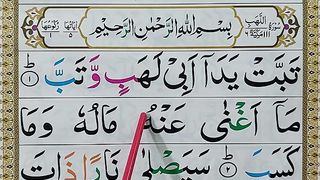 بِسْمِ اللّٰهِ الرَّحْمٰنِ الرَّحِيْمِ
تَبَّتْ يَدَاۤ اَبِيْ لَهَبٍ وَّتَبَّ ۝۱
مَاۤ اَغْنٰى عَنْهُ مَالُهٗ وَمَا
كَسَبَ ۝۲ سَيَصْلٰى نَارًا ذَاتَ